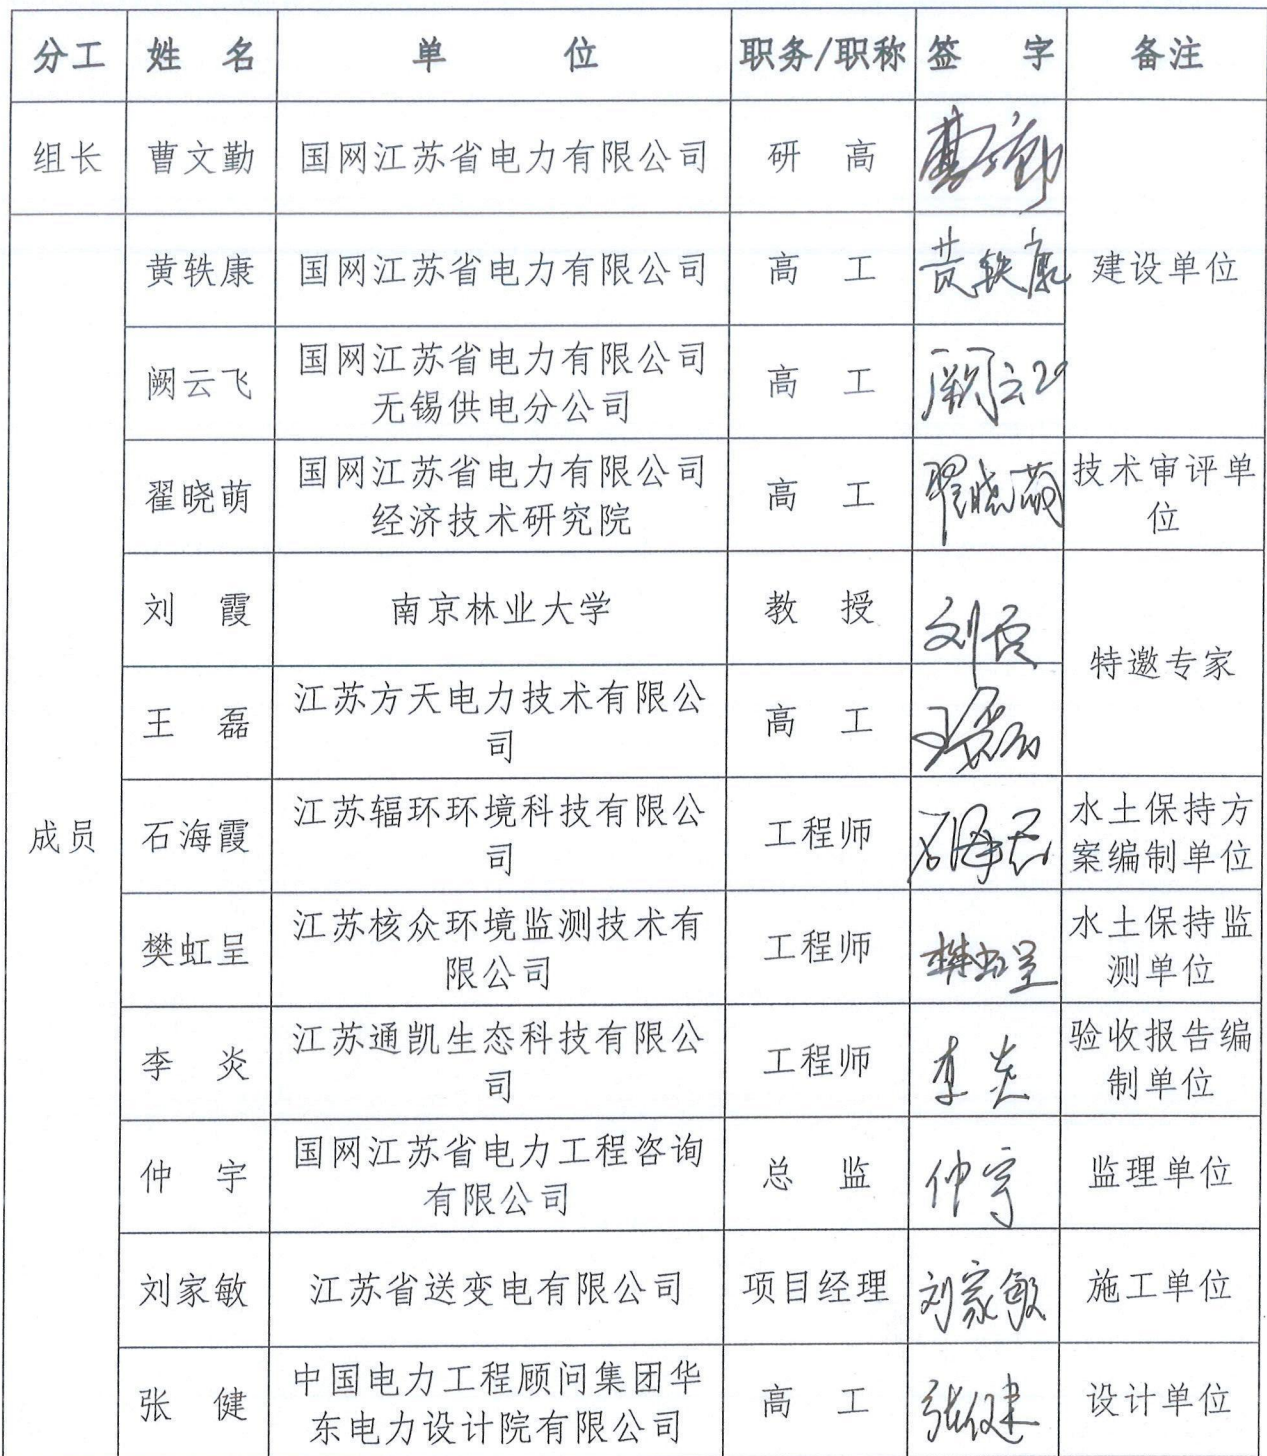 分工 姓 名 单 位 职务/职称 签 字 备注
组长 曹文勤 国网江苏省电力有限公司 研 高 曹文勤
建设单位
成员
黄轶康 国网江苏省电力有限公司 高 工 黄轶康
阙云飞 国网江苏省电力有限公司
无锡供电分公司 高 工 阙云飞
翟晓萌 国网江苏省电力有限公司
经济技术研究院 高 工 翟晓萌 技术审评单
位
刘 霞 南京林业大学 教 授 刘霞
特邀专家
王 磊 江苏方天电力技术有限公
司 高 工 王磊
石海霞 江苏辐环环境科技有限公
司 工程师 石海霞 水土保持方
案编制单位
樊虹呈 江苏核众环境监测技术有
限公司 工程师 樊虹呈 水土保持监
测单位
李 炎 江苏通凯生态科技有限公
司 工程师 李炎 验收报告编
制单位
仲 宇 国网江苏省电力工程咨询
有限公司 总 监 仲宇 监理单位
刘家敏 江苏省送变电有限公司 项目经理 刘家敏 施工单位
张 健 中国电力工程顾问集团华
东电力设计院有限公司 高 工 张健 设计单位